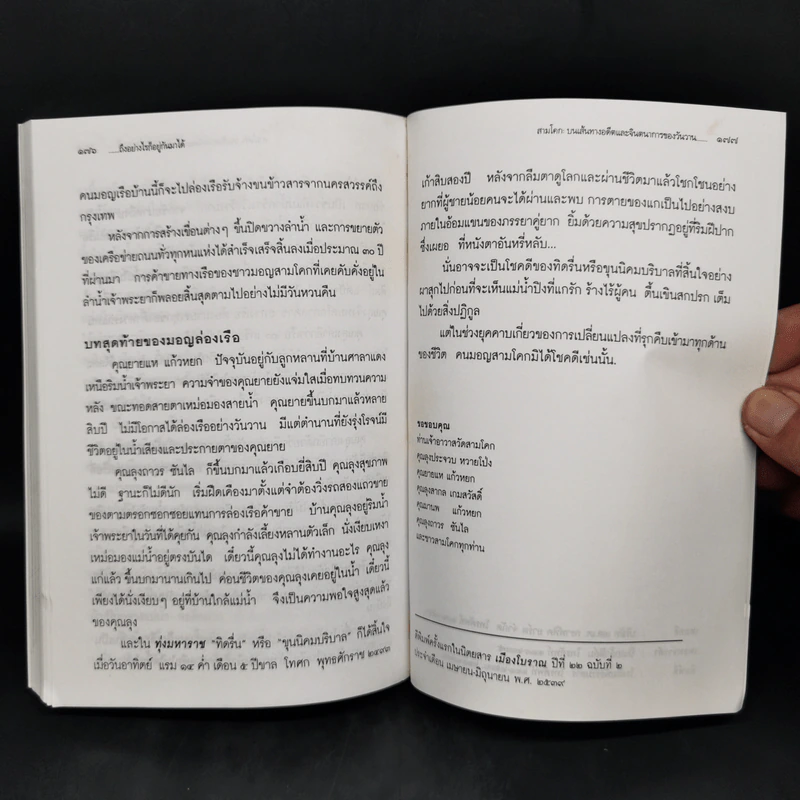 ๑๗๖ .....ถึงอย่างไรก็อยู่กันมาได้
คนมอญเรือบ้านนี้ก็จะไปล่องเรือรับจ้างขนข้าวสารจากนครสวรรค์ถึง
กรุงเทพ
หลังจากการสร้างเขื่อนต่างๆ ขึ้นปิดขวางลำน้ำ และการขยายตัว
ของเครือข่ายถนนทั่วทุกหนแห่งได้สำเร็จเสร็จสิ้นลงเมื่อประมาณ ๓๐ ปี
ที่ผ่านมา การค้าขายทางเรือของชาวมอญสามโคกที่เคยคับคั่งอยู่ใน
ลำน้ำเจ้าพระยาก็พลอยสิ้นสุดตามไปอย่างไม่มีวันหวนคืน
บทสุดท้ายของมอญล่องเรือ
คุณยายแห แก้วหยก ปัจจุบันอยู่กับลูกหลานที่บ้านศาลาแดง
เหนือริมน้ำเจ้าพระยา ความจำของคุณยายยังแจ่มใสเมื่อทบทวนความ
หลัง ขณะทอดสายตาเหม่อมองสายน้ำ คุณยายขึ้นบกมาแล้วหลาย
สิบปี ไม่มีโอกาสได้ล่องเรืออย่างวันวาน มีแต่ตำนานที่ยังรุ่งโรจน์มี
ชีวิตอยู่ในน้ำเสียงและประกายตาของคุณยาย
คุณลุงถาวร ซันไล ก็ขึ้นบกมาแล้วเกือบยี่สิบปี คุณลุงสุขภาพ
ไม่ดี ฐานะก็ไม่ดีนัก เริ่มฝืดเคืองมาตั้งแต่จำต้องวิ่งรถสองแถวขาย
ของตามตรอกซอกซอยแทนการล่องเรือค้าขาย บ้านคุณลุงอยู่ริมน้ำ
เจ้าพระยาในวันที่ได้คุยกัน คุณลุงกำลังเลี้ยงหลานตัวเล็ก นั่งเงียบเหงา
เหม่อมองแม่น้ำอยู่ตรงบันได เดี๋ยวนี้คุณลุงไม่ได้ทำงานอะไร คุณลุง
แก่แล้ว ขึ้นบกมานานเกินไป ค่อนชีวิตของคุณลุงเคยอยู่ในน้ำ เดี๋ยวนี้
เพียงได้นั่งเงียบๆ อยู่ที่บ้านใกล้แม่น้ำ จึงเป็นความพอใจสูงสุดแล้ว
ของคุณลุง
และใน ทุ่งมหาราช "ทิดรื่น" หรือ "ขุนนิคมบริบาล" ก็ได้สิ้นใจ
เมื่อวันอาทิตย์ แรม ๑๔ ค่ำ เดือน ๕ ปีขาล โทศก พุทธศักราช ๒๔๙๓
สามโคก: บนเส้นทางอดีตและจินตนาการของวันวาน..... ๑๗๗
เก้าสิบสองปี หลังจากลืมตาดูโลกและผ่านชีวิตมาแล้วโชกโชนอย่าง
ยากที่ผู้ชายน้อยคนจะได้ผ่านและพบ การตายของแกเป็นไปอย่างสงบ
ภายในอ้อมแขนของภรรยาคู่ยาก ยิ้มด้วยความสุขปรากฏอยู่ที่ริมฝีปาก
ซึ่งเผยอ ที่หนังตาอันหรี่หลับ...
นั่นอาจจะเป็นโชคดีของทิดรื่นหรือขุนนิคมบริบาลที่สิ้นใจอย่าง
ผาสุกไปก่อนที่จะเห็นแม่น้ำปิงที่แกรัก ร้างไร้ผู้คน ตื้นเขินสกปรก เต็ม
ไปด้วยสิ่งปฏิกูล
แต่ในช่วงยุคคาบเกี่ยวของการเปลี่ยนแปลงที่รุกคืบเข้ามาทุกด้าน
ของชีวิต คนมอญสามโคกมิได้โชคดีเช่นนั้น.
ขอขอบคุณ
ท่านเจ้าอาวาสวัดสามโคก
คุณลุงประจวบ หวายโป่ง
คุณยายแห แก้วหยก
คุณลุงสากล เกมสวัสดิ์
คุณมานพ แก้วหยก
คุณลุงถาวร ซันไล
และชาวสามโคกทุกท่าน
ตีพิมพ์ครั้งแรกในนิตยสาร เมืองโบราณ ปีที่ ๒๒ ฉบับที่ ๒
ประจำเดือน เมษายน-มิถุนายน พ.ศ. ๒๕๓๙